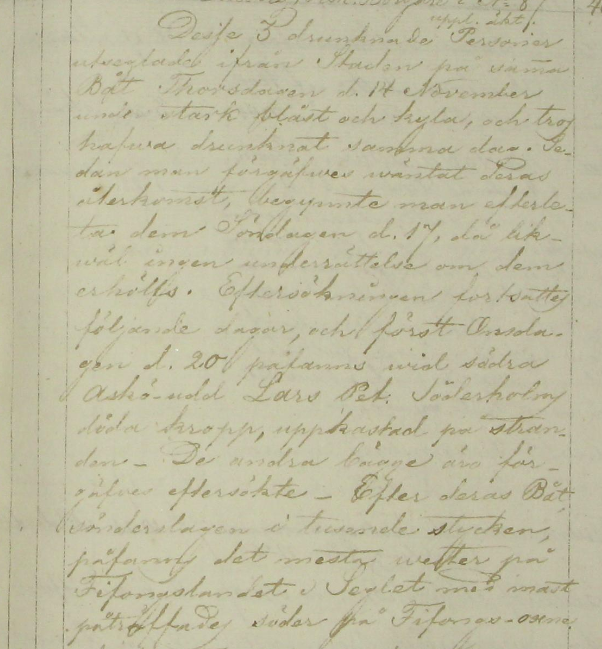 uppl. Akt.
Desse 3 drunknade Personer
utseglade ifrån Staden på samma
Båt Thorsdagen d. 14 November
under stark blåst och kyla, och tros
hafwa drunknat samma dag. Se-
dan man förgäfwes wäntat deras
återkomst, begynnte man efterle-
ta dem Söndagen d. 17, då lik-
wäl ingen underrättelse om dem
erhölls. Eftersökningen fortsattes
följande dagar, och först Onsda-
gen d. 20 påfanns wid södra
Askö-udd Lars Pet. Söderholms
döda kropp, uppkastad på stran-
den - De andra bägge äro för-
gäfwes eftersökte - Efter deras Båt,
sönderslagen i tusende stycken,
påfanns det mesta wester på
Fifongslandet; Seglet med mast
påträffades söder på Fifongs-